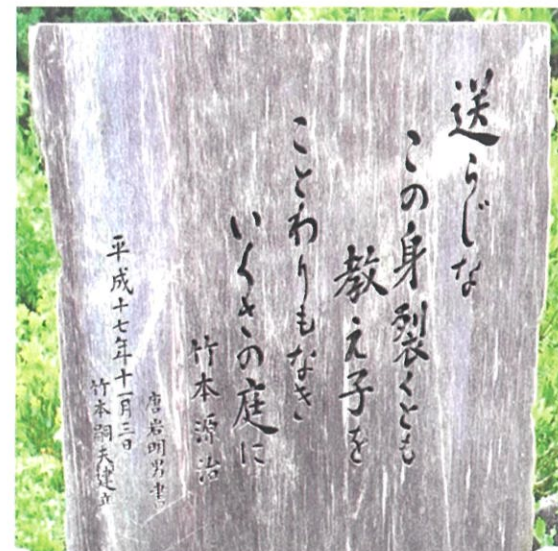 送らじな
この身裂くとも
教え子を
ことわりもなき
いくさの庭に
竹本源治
唐岩明男書
平成十七年十一月三日
竹本嗣夫建立